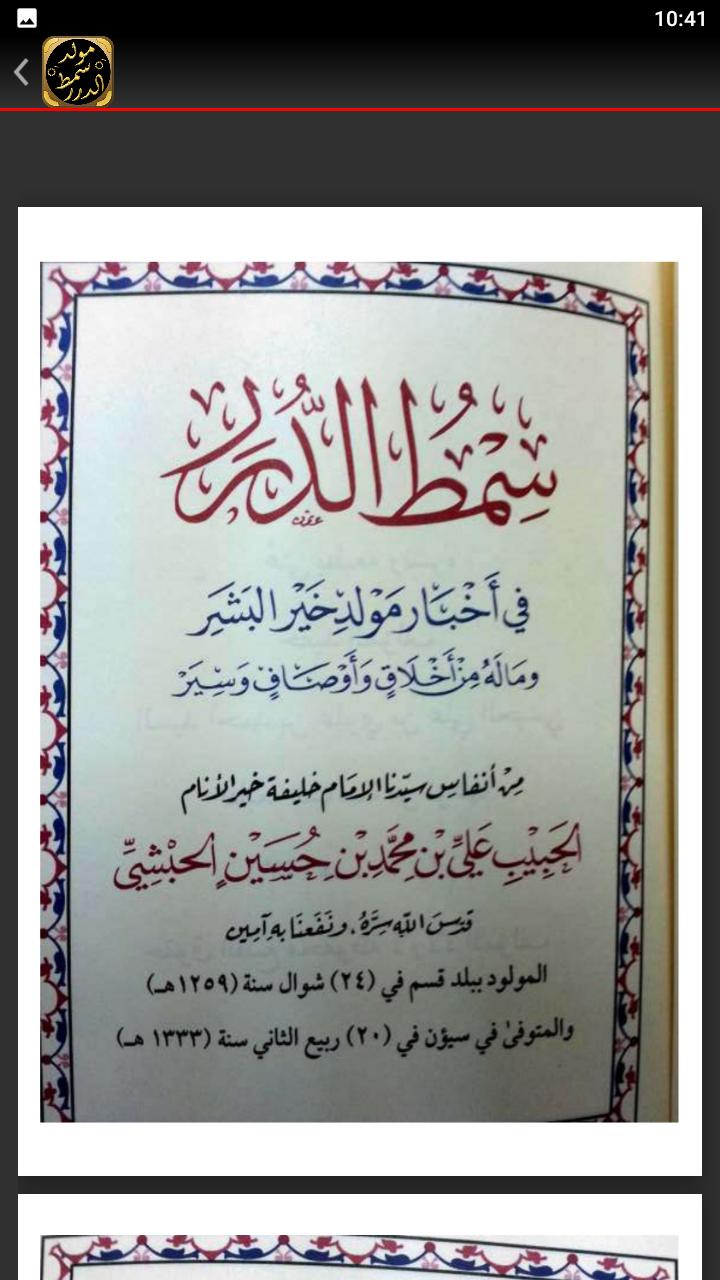 10:41
مولد
سمط
الدرر
سِمْطُ الدُّرَر
فِي أَخْبَار مَوْلِدِ خَيْرِ البَشَرِ
وَمَا لَهُ مِنْ أَخْلَاقٍ وَأَوْصَافٍ وَسِيَرْ
مِنْ أنفاسِ سيّدنا الإمَام خليفة خير الأنام
الحَبِيْبِ عَلِيِّ بْنِ مُحَمَّدِ بْنِ حُسَيْنٍ الحَبْشِيِّ
قدّسَ اللهُ سِرَّهُ، ونَفَعَنَا بهِ آمِين
المولود ببلد قسم في (٢٤) شوال سنة (١٢٥٩هـ)
والمتوفىٰ في سيؤن في (٢٠) ربيع الثاني سنة (١٣٣٣ هـ)